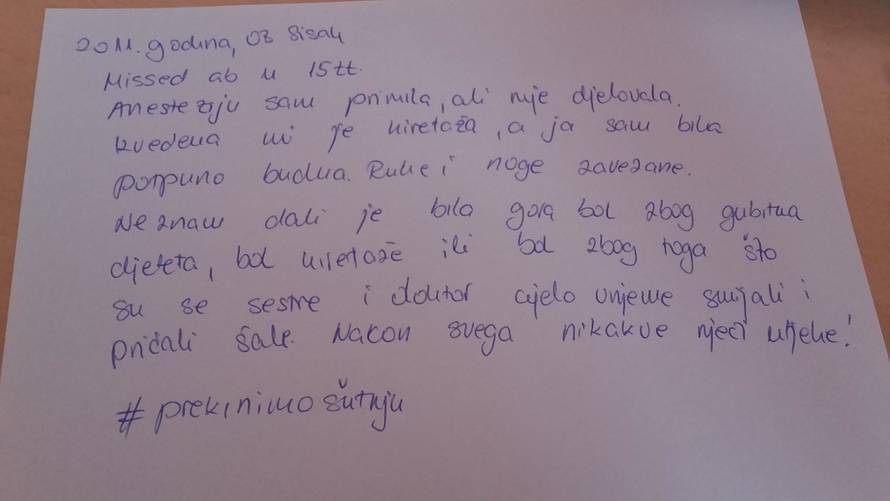 2011. godina, OB Sisak
Missed ab u 15tt.
Anesteziju sam primila, ali nije djelovala.
Izvedena mi je kiretaža, a ja sam bila
potpuno budna. Ruke i noge zavezane.
Ne znam dali je bila gora bol zbog gubitka
djeteta, bol kiretaže ili bol zbog toga što
su se sestre i doktor cijelo vrijeme smijali i
pričali šale. Nakon svega nikakve riječi utjehe!
#prekinimošutnju